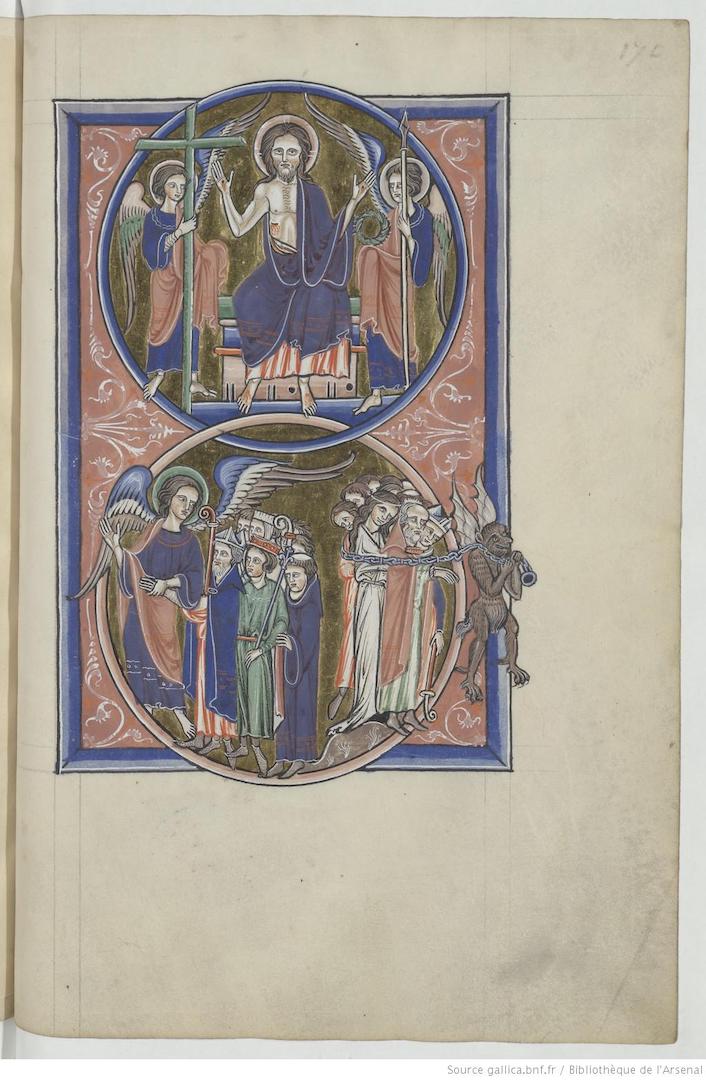 Source gallica.bnf.fr / Bibliothèque de l'Arsenal